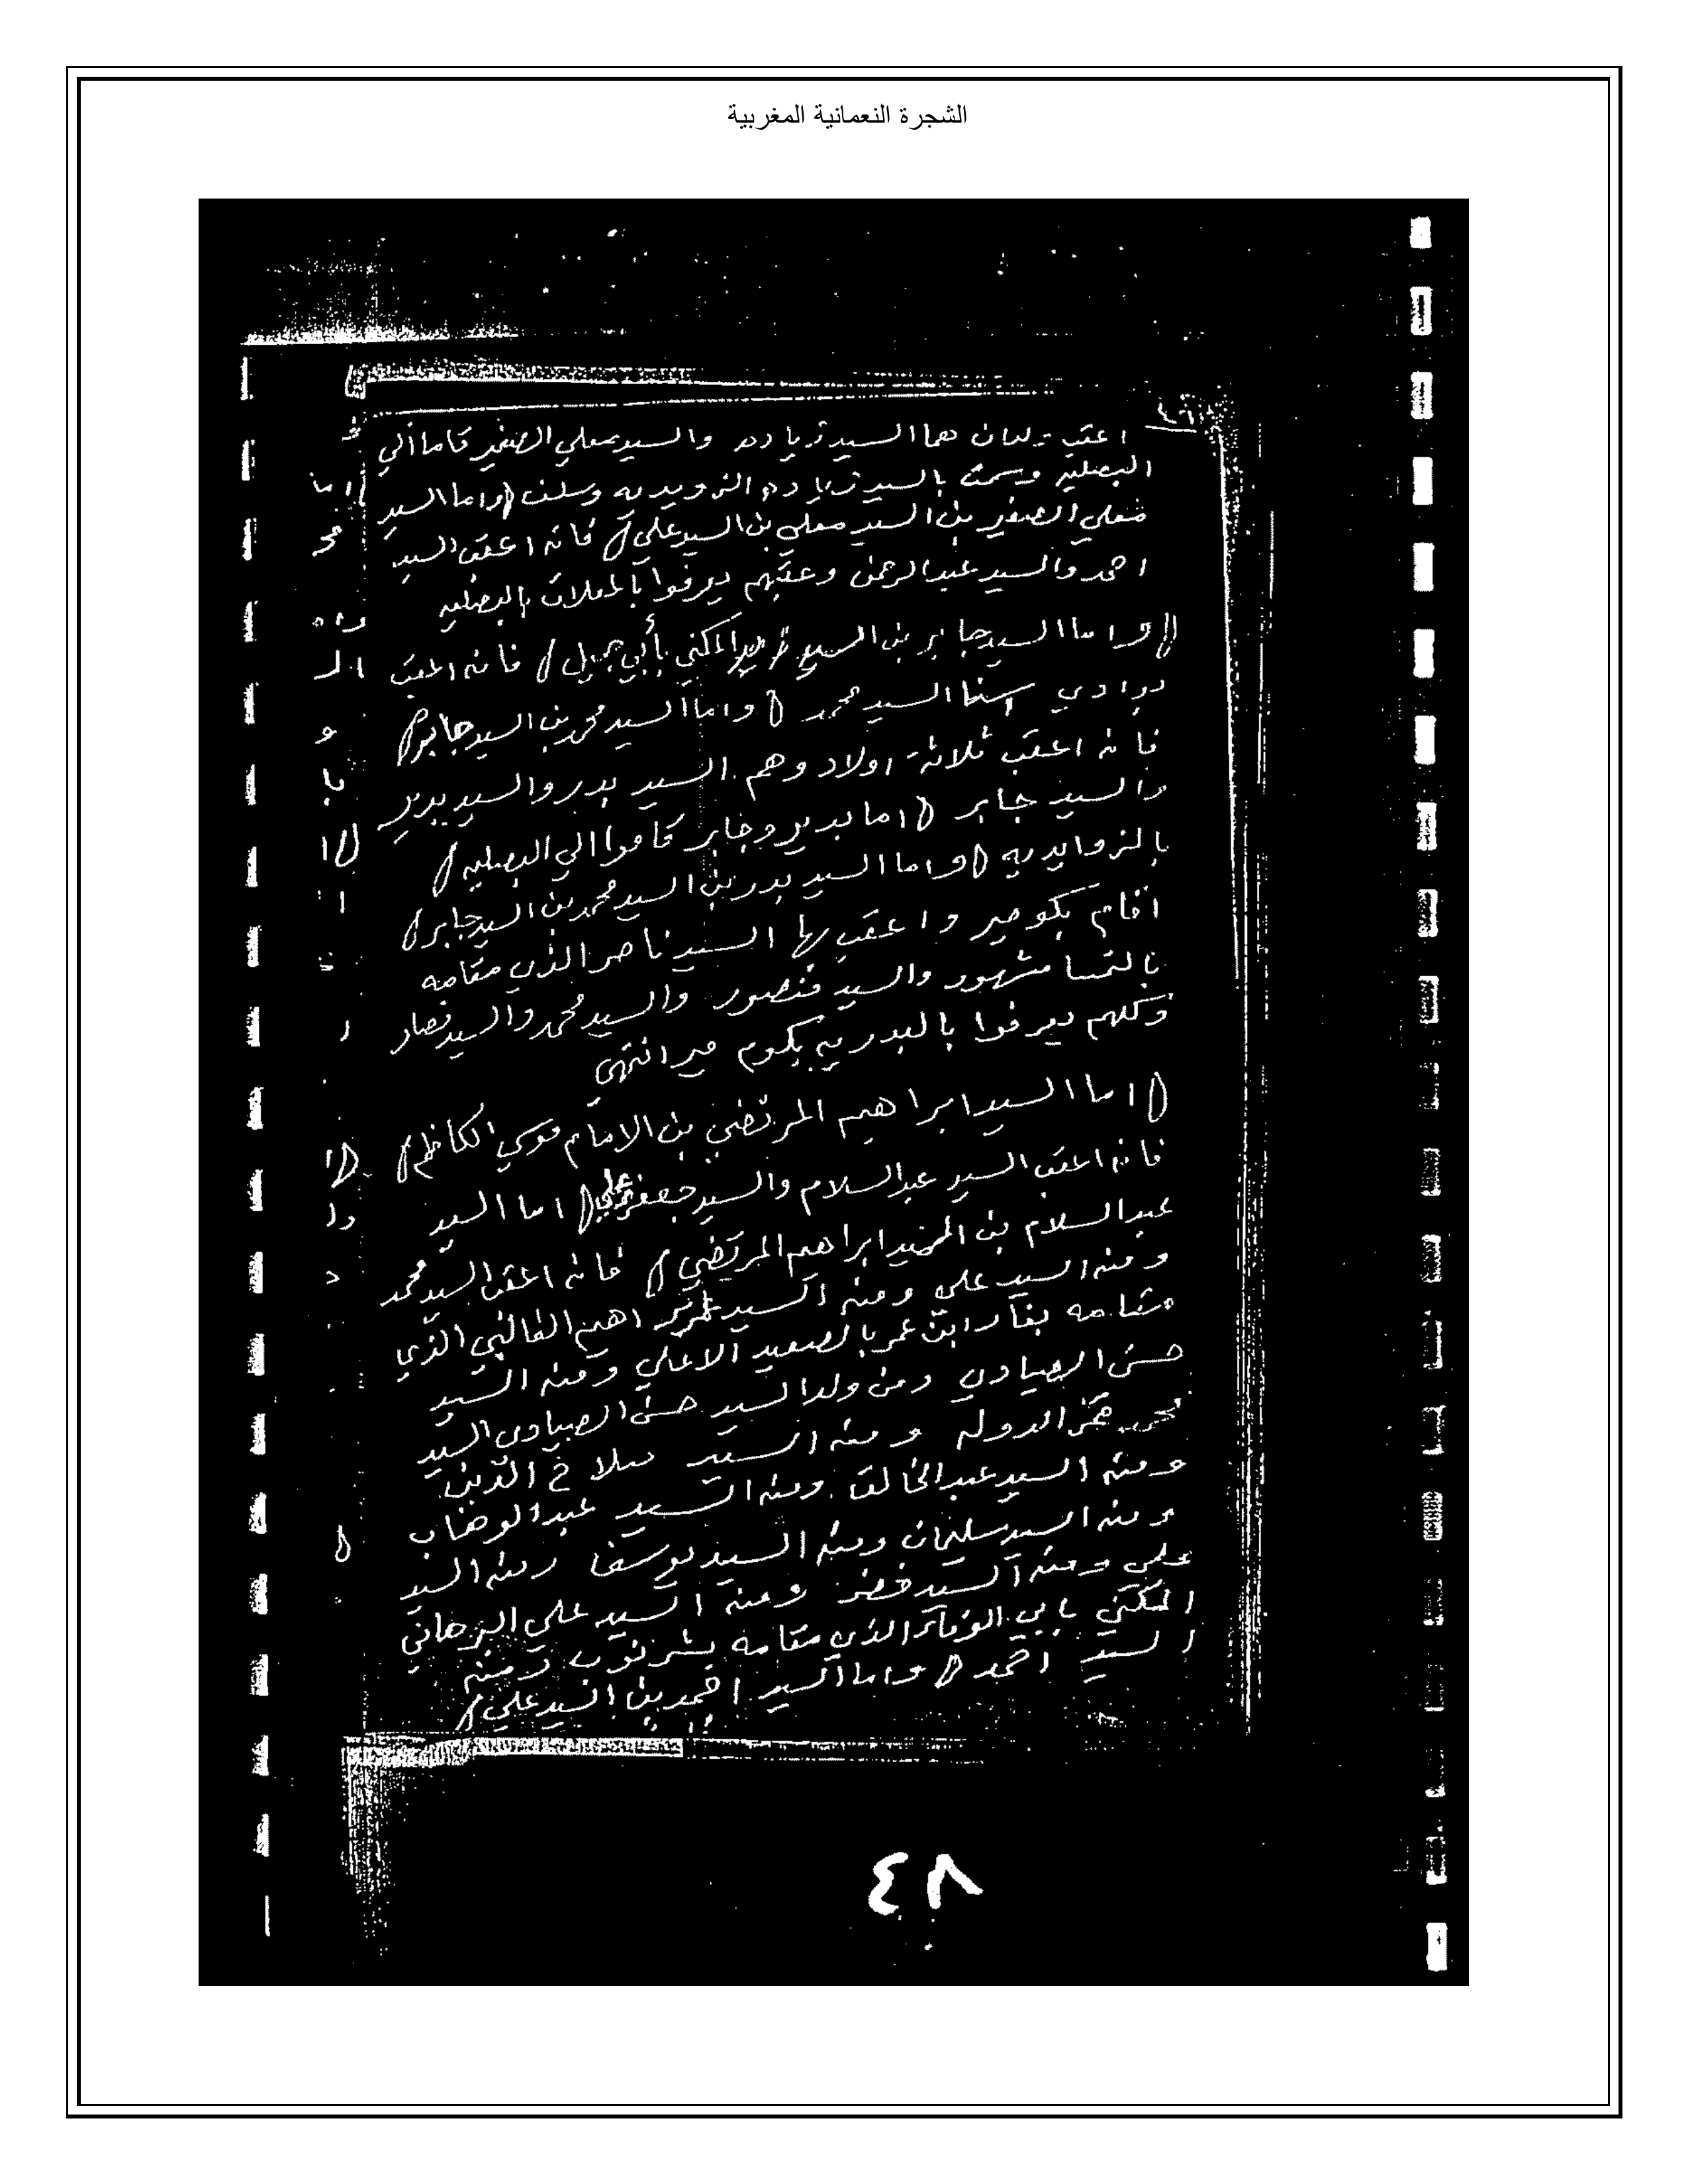 الشجرة النعمانية المغربية
اعقب ولدان هما السيد زياده والسيد معلي الصغير قاما الي
البصليه وسمت بالسيد زياده الزويديه وسلف واما السيد
معلي الصغير بن السيد معلي بن السيد علي فانه اعقب السيد
احمد والسيد عبد الرحمن وعقبهم يعرفوا بالبصليه
واما السيد جابر بن السيد المكني بأبي جميل فانه اعقب
بوادي اسنا السيد محمد واما السيد محمد بن السيد جابر
فانه اعقب ثلاثة اولاد وهم السيد بدر والسيد بدير
والسيد جابر اما بدير وجابر قاموا الي البصليه
بالزوايديه واما السيد بدر بن السيد محمد بن السيد جابر
اقام بكومير واعقب بها السيد ناصر الذي مقامه
بالنمسا مشهور والسيد منصور والسيد محمد والسيد نصار
وكلهم يعرفوا بالبدريه بكوم مير انتهي
اما السيد ابراهيم المرتضي بن الامام موسي الكاظم
فانه اعقب السيد عبد السلام والسيد جعفر علي اما السيد
عبد السلام بن السيد ابراهيم المرتضي فانه اعقب السيد محمد
ومنه السيد علي ومنه السيد ابراهيم الغالبي الذي
مقامه بفار ابن عمر بالصعيد الاعلي ومنه السيد
حسن الصيادي ومن ولد السيد حسن الصيادي السيد
عز الدوله ومنه السيد صلاح الدين
ومنه السيد عبد الخالق ومنه السيد عبد الوهاب
ومنه السيد سليمان ومنه السيد يوسف ومنه السيد
علي ومنه السيد خضر ومنه السيد علي الرحماني
المكني بابي الوفا الذي مقامه بشرنوب ومنه
السيد احمد واما السيد احمد بن السيد علي
٤٨